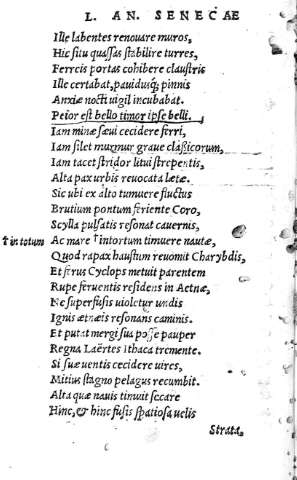 L. AN. SENECAE
Ille labentes renouare muros,
Hic situ quassas stabilire turres,
Ferreis portas cohibere claustris
Ille certabat, pauidusq; pinnis
Anxiæ nocti uigil incubabat.
Peior est bello timor ipse belli.
Iam minæ sæui cecidere ferri,
Iam silet murmur graue classicorum,
Iam tacet stridor litui strepentis,
Alta pax urbis reuocata lætæ.
Sic ubi ex alto tumuere fluctus
Brutium pontum feriente Coro,
Scylla pulsatis resonat cauernis,
† in totum Ac mare † intortum timuere nautæ,
Quod rapax haustum reuomit Charybdis,
Et ferus Cyclops metuit parentem
Rupe feruentis residens in Aetnæ,
Ne superfusis uioletur undis
Ignis ætnæis resonans caminis.
Et putat mergi sua posse pauper
Regna Laërtes Ithaca tremente.
Si suæ uentis cecidere uires,
Mitius stagno pelagus recumbit.
Alta quæ nauis timuit secare
Hinc, & hinc fusis spatiosa uelis
Strata,